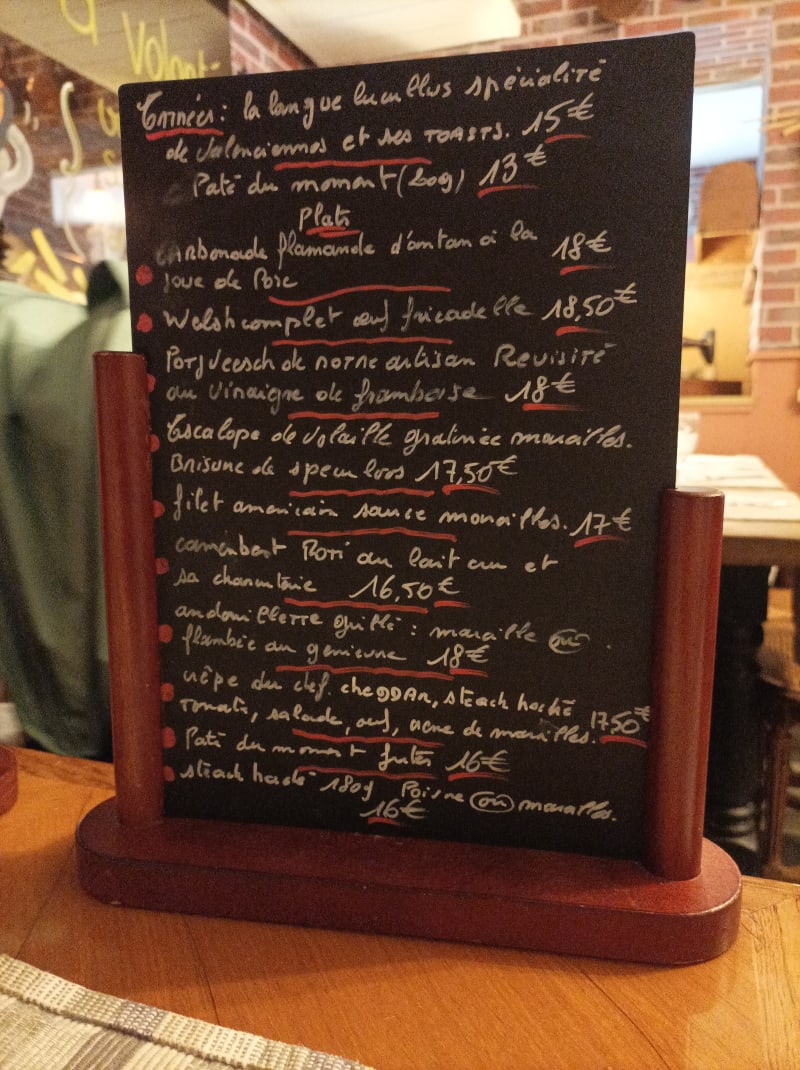 Volonté
Entrées: la langue lucullus spécialité
de Valenciennes et ses TOASTS. 15€
Paté du moment (200g) 13€
Plats
Carbonade flamande d'antan à la
Joue de Porc 18€
Welsh complet œuf fricadelle 18,50€
Potjveesch de notre artisan Revisité
au Vinaigre de framboise 18€
Escalope de volaille gratinée maroilles.
Brisure de speculoos 17,50€
filet americain sauce maroilles. 17€
camembert Roti au lait cru et
sa charcuterie 16,50€
andouillette grillé: maroille ou
flambée au genievre 18€
crêpe du chef. cheDDAR, steack haché
Tomate, salade, œuf, creme de maroilles. 1750€
Paté du moment frites 16€
steack haché 180g Poivre ou maroilles.
16€